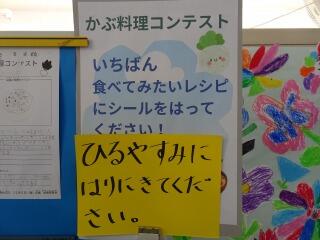 かぶ料理コンテスト
いちばん
食べてみたいレシピ
にシールをはって
ください！
ひるやすみに
はりにきてくだ
さい。
理コンテスト